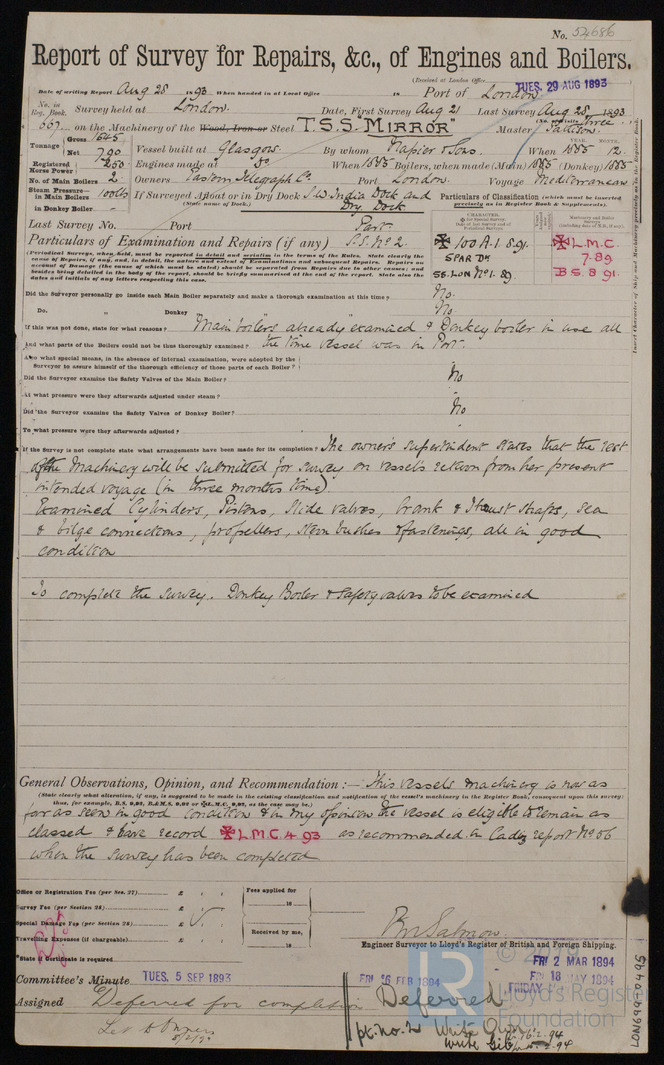 No. 54686
Report of Survey for Repairs, &c., of Engines and Boilers.
(Received at London Office
TUES. 29 AUG 1893
Date of writing Report Aug 28 1893 When handed in at Local Office 18 Port of London
No. in Reg. Book. Survey held at London. Date, First Survey Aug 21 Last Survey Aug 28 1893
667 on the Machinery of the Wood, Iron or Steel T.S.S "MIRROR" Master Pattison
Tonnage Gross 1545 Net 790 Vessel built at Glasgow By whom Napier & Sons. When 1885 12
Registered Horse Power 250 Engines made at Do When 1885 Boilers, when made (Main) 1885 (Donkey) 1885
No. of Main Boilers 2 Owners Eastern Telegraph Co. Port London. Voyage Mediterranean
Steam Pressure— in Main Boilers 100 lbs If Surveyed Afloat or in Dry Dock S.W. India Dock and Dry Dock
in Donkey Boiler (State name of Dock.)
Particulars of Classification (which must be inserted precisely as in Register Book & Supplements).
Last Survey No. Port Part
Particulars of Examination and Repairs (if any) S.S. No 2
✠ 100 A.1. 8.91. SPAR DK SS. LON No 1. 89
✠ L.M.C. 7.89 B.S. 8 91.
(Periodical Surveys, when held, must be reported in detail and seriatim in the terms of the Rules. State clearly the
cause of Repairs, if any, and, in detail, the nature and extent of Examinations and subsequent Repairs. Repairs on
account of Damage (the cause of which must be stated) should be separated from Repairs due to other causes; and
besides being detailed in the body of the report, should be briefly summarised at the end of the report. State also the
dates and initials of any letters respecting this case.
Did the Surveyor personally go inside each Main Boiler separately and make a thorough examination at this time? No.
Do. " Donkey " No
If this was not done, state for what reasons? Main boilers already examined & Donkey boiler in use all
And what parts of the Boilers could not be thus thoroughly examined? the time vessel was in Port.
Also what special means, in the absence of internal examination, were adopted by the
Surveyor to assure himself of the thorough efficiency of those parts of each Boiler?
Did the Surveyor examine the Safety Valves of the Main Boiler? No
At what pressure were they afterwards adjusted under steam? "
Did the Surveyor examine the Safety Valves of Donkey Boiler? No
To what pressure were they afterwards adjusted? "
If the Survey is not complete state what arrangements have been made for its completion? The owner's superintendent states that the rest
of the Machinery will be submitted for survey on vessels return from her present
intended voyage (in three months time)
Examined Cylinders, Pistons, Slide valves, Crank & Thrust shafts, Sea
& bilge connections, propellers, stern bushes & fastenings, all in good
condition
To complete the survey. Donkey Boiler & Safety valves to be examined
General Observations, Opinion, and Recommendation :— This vessels machinery is now as
(State clearly what alteration, if any, is suggested to be made in the existing classification and notification of the vessel's machinery in the Register Book, consequent upon this survey:
thus, for example, B.S. 9,92, B.&M.S. 9,92 or ✠L.M.C. 9,92, as the case may be.)
far as seen in good condition & in my opinion the vessel is eligible to remain as
classed & have record ✠ L.M.C. 4 93 as recommended in Cadiz report No 56
when the survey has been completed
Office or Registration Fee (per Sec. 27) £ : :
Survey Fee (per Section 28) £ : :
Special Damage Fee (per Section 28) £ : :
Travelling Expenses (if chargeable) £ : :
Fees applied for 18
Received by me, 18
*State if Certificate is required
Engineer Surveyor to Lloyd's Register of British and Foreign Shipping.
Committee's Minute TUES. 5 SEP 1893
FRI 16 FEB 1894
FRI 2 MAR 1894
FRIDAY
FRI 18 MAY 1894
Assigned Deferred for completion
Deferred
Let to Owners
pt. no. 2 Write Own 16.2.94
Write Gib
Lloyd's Register Foundation
LON699-0495